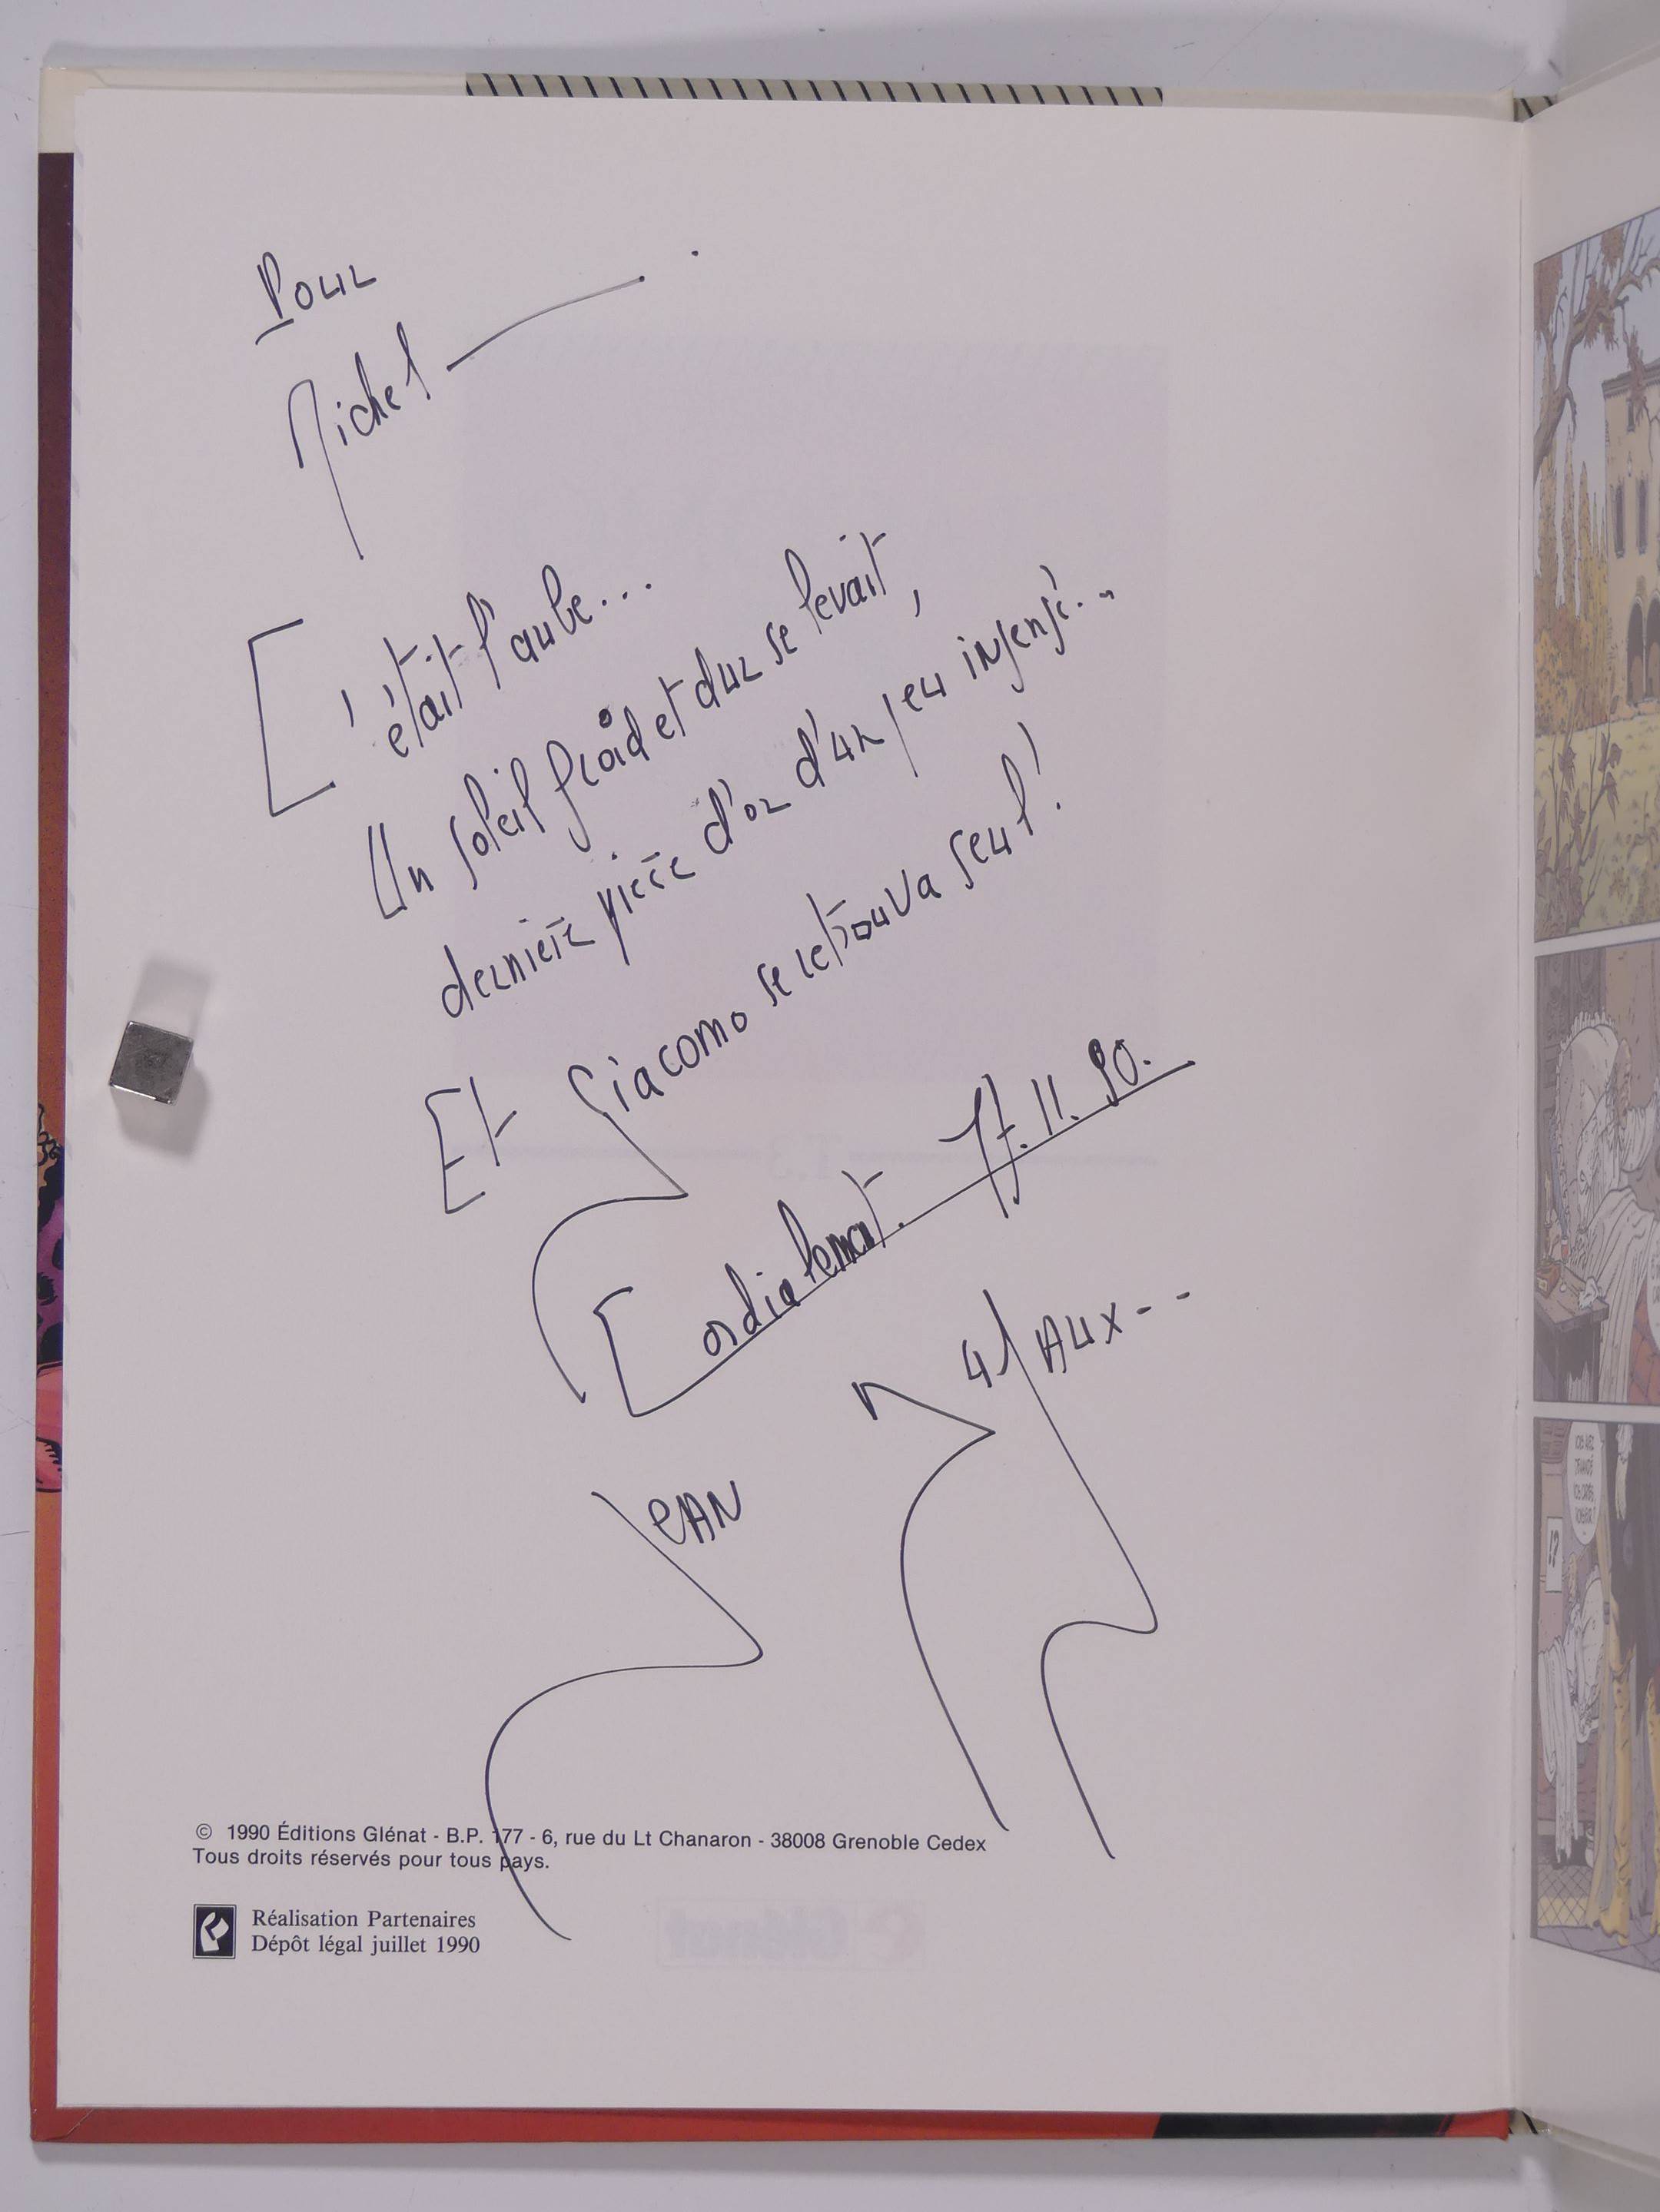 Pour
Michel
C'était l'aube...
Un soleil froid et dur se levait,
dernière pièce d'or d'un jeu insensé...
Et Giacomo se retrouva seul!
Cordialement. 17.11.90.
Jean Dufaux--
© 1990 Éditions Glénat - B.P. 177 - 6, rue du Lt Chanaron - 38008 Grenoble Cedex
Tous droits réservés pour tous pays.
Réalisation Partenaires
Dépôt légal juillet 1990
T.3
Glénat